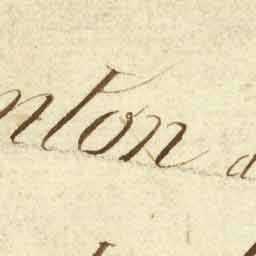 nton d